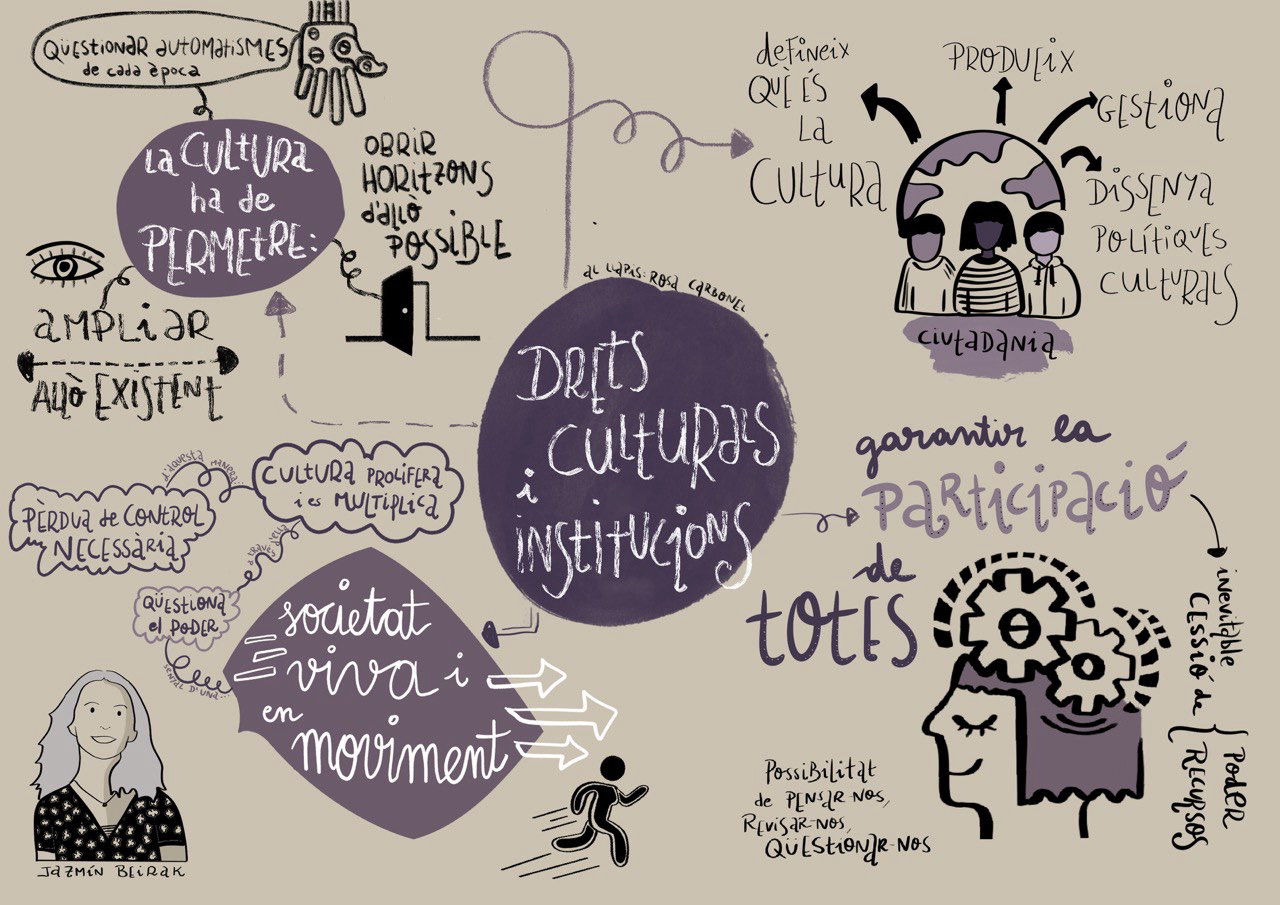 QÜESTIONAR AUTOMATISMES
de cada època
LA CULTURA
ha de
PERMETRE:
OBRIR
HORITZONS
d'allò
POSSIBLE
AMPLIAR
ALLÒ EXISTENT
DRETS
CULTURALS
i
INSTITUCIONS
AL LLAPIS: ROSA CARBONEL
defineix
QUÈ ÉS
LA
CULTURA
PRODUEIX
GESTIONA
DISSENYA
POLÍTIQUES
CULTURALS
CIUTADANIA
garantir la
PARTICIPACIÓ
de
TOTES
inevitable
CESSIÓ de
PODER
RECURSOS
POSSIBILITAT
de PENSAR-NOS,
REVISAR-NOS,
QÜESTIONAR-NOS
societat
viva i
en
moviment
SENYAL D'UNA...
QÜESTIONA
el PODER
A TRAVÉS d'ELLA
CULTURA PROLIFERA
i es MULTIPLICA
d'AQUESTA MANERA:
PÈRDUA de CONTROL
NECESSÀRIA
JAZMÍN BEIRAK